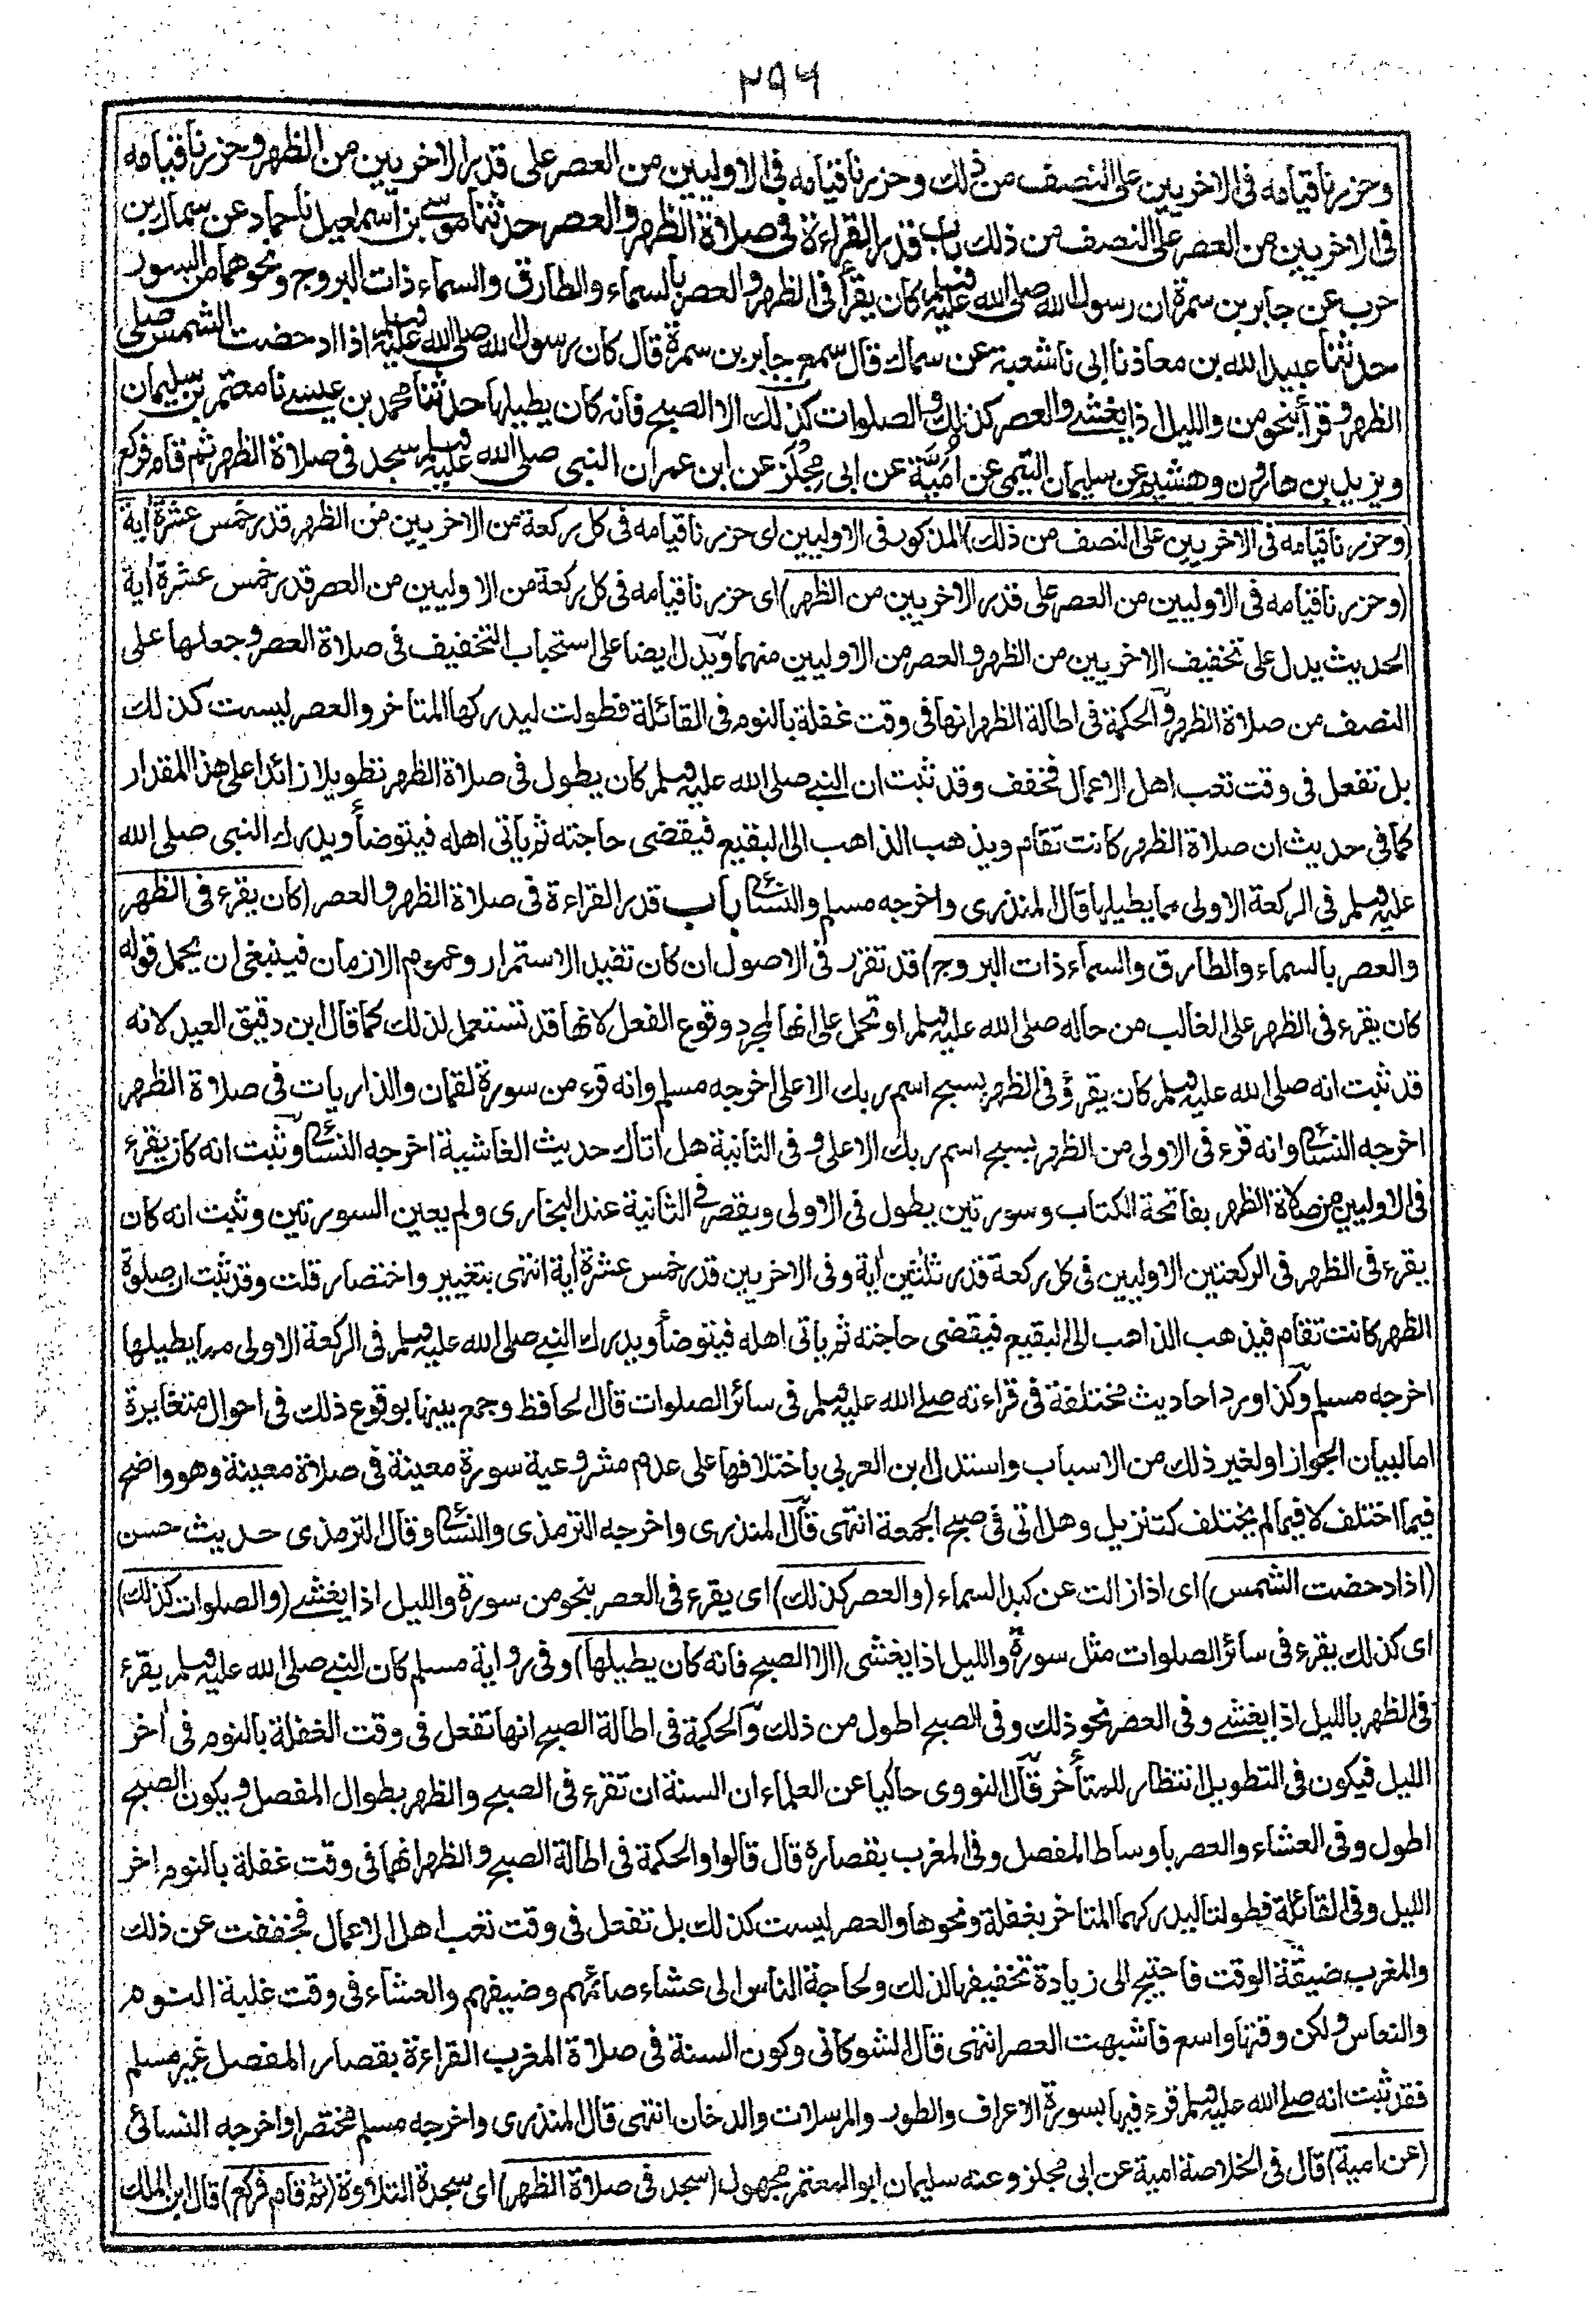 ٢٩٦
وحزرنا قيامه فى الاخريين على النصف من ذلك وحزرنا قيامه فى الاوليين من العصر على قدر الاخريين من الظهر وحزرنا قيامه
فى الاخريين من العصر على النصف من ذلك باب قدر القراءة فى صلاة الظهر والعصر حدثنا موسى بن اسماعيل نا حماد عن سماك بن
حرب عن جابر بن سمرة ان رسول الله صلى الله عليه وسلم كان يقرأ فى الظهر والعصر بالسماء والطارق والسماء ذات البروج ونحوهما من السور
حدثنا عبيد الله بن معاذ نا ابى نا شعبة عن سماك قال سمع جابر بن سمرة قال كان رسول الله صلى الله عليه وسلم اذا ادحضت الشمس صلى
الظهر وقرأ بنحو من والليل اذا يغشى والعصر كذلك والصلوات كذلك الا الصبح فانه كان يطيلها حدثنا محمد بن عيسى نا معتمر بن سليمان
ويزيد بن هارون وهشيم عن سليمان التيمى عن امية عن ابى مجلز عن ابن عمر ان النبى صلى الله عليه وسلم سجد فى صلاة الظهر ثم قام فركع
(وحزرنا قيامه فى الاخريين على النصف من ذلك) المذكور فى الاوليين اى حزرنا قيامه فى كل ركعة من الاخريين من الظهر قدر خمس عشرة أية
(وحزرنا قيامه فى الاوليين من العصر على قدر الاخريين من الظهر) اى حزرنا قيامه فى كل ركعة من الاوليين من العصر قدر خمس عشرة أية
الحديث يدل على تخفيف الاخريين من الظهر والعصر من الاوليين منهما ويدل ايضا على استحباب التخفيف فى صلاة العصر وجعلها على
النصف من صلاة الظهر والحكمة فى اطالة الظهر انها فى وقت غفلة بالنوم فى القائلة فطولت ليدركها المتاخر والعصر ليست كذلك
بل تفعل فى وقت تعب اهل الاعمال فخفف وقد ثبت ان النبى صلى الله عليه وسلم كان يطول فى صلاة الظهر تطويلا زائدا على هذا المقدار
كما فى حديث ان صلاة الظهر كانت تقام ويذهب الذاهب الى البقيع فيقضى حاجته ثم ياتى اهله فيتوضأ ويدرك النبى صلى الله
عليه وسلم فى الركعة الاولى مما يطيلها قال المنذرى واخرجه مسلم والنسائى باب قدر القراءة فى صلاة الظهر والعصر (كان يقرء فى الظهر
والعصر بالسماء والطارق والسماء ذات البروج) قد تقرر فى الاصول ان كان تفيد الاستمرار وعموم الازمان فينبغى ان يحمل قوله
كان يقرء فى الظهر على الغالب من حاله صلى الله عليه وسلم او تحمل على انها لمجرد وقوع الفعل لانها قد تستعمل لذلك كما قال ابن دقيق العيد لانه
قد ثبت انه صلى الله عليه وسلم كان يقرؤ فى الظهر بسبح اسم ربك الاعلى اخرجه مسلم وانه قرء من سورة لقمان والذاريات فى صلاة الظهر
اخرجه النسائى وانه قرء فى الاولى من الظهر بسبح اسم ربك الاعلى وفى الثانية هل اتاك حديث الغاشية اخرجه النسائى وثبت انه كان يقرء
فى الاوليين من صلاة الظهر بفاتحة الكتاب وسورتين يطول فى الاولى ويقصر فى الثانية عند البخارى ولم يعين السورتين وثبت انه كان
يقرء فى الظهر فى الركعتين الاوليين فى كل ركعة قدر ثلثين أية وفى الاخريين قدر خمس عشرة أية انتهى بتغيير واختصار قلت وقد ثبت ان صلوة
الظهر كانت تقام فيذهب الذاهب الى البقيع فيقضى حاجته ثم ياتى اهله فيتوضأ ويدرك النبى صلى الله عليه وسلم فى الركعة الاولى مما يطيلها
اخرجه مسلم وكذا ورد احاديث مختلفة فى قراءته صلى الله عليه وسلم فى سائر الصلوات قال الحافظ وجمع بينها بوقوع ذلك فى احوال متغايرة
اما لبيان الجواز او لغير ذلك من الاسباب واستدل ابن العربى باختلافها على عدم مشروعية سورة معينة فى صلاة معينة وهو واضح
فيما اختلف لا فيما لم يختلف كتنزيل وهل اتى فى صبح الجمعة انتهى قال المنذرى واخرجه الترمذى والنسائى وقال الترمذى حديث حسن
(اذا دحضت الشمس) اى اذا زالت عن كبد السماء (والعصر كذلك) اى يقرء فى العصر بنحو من سورة والليل اذا يغشى (والصلوات كذلك)
اى كذلك يقرء فى سائر الصلوات مثل سورة والليل اذا يغشى (الا الصبح فانه كان يطيلها) وفى رواية مسلم كان النبى صلى الله عليه وسلم يقرء
فى الظهر بالليل اذا يغشى وفى العصر نحو ذلك وفى الصبح اطول من ذلك والحكمة فى اطالة الصبح انها تفعل فى وقت الغفلة بالنوم فى أخر
الليل فيكون فى التطويل انتظار للمتأخر قال النووى حاكيا عن العلماء ان السنة ان تقرء فى الصبح والظهر بطوال المفصل ويكون الصبح
اطول وفى العشاء والعصر باوساط المفصل وفى المغرب بقصاره قال قالوا والحكمة فى اطالة الصبح والظهر انهما فى وقت غفلة بالنوم اخر
الليل وفى القائلة فطولتا ليدركهما المتاخر بغفلة ونحوها والعصر ليست كذلك بل تفعل فى وقت تعب اهل الاعمال فخففت عن ذلك
والمغرب ضيقة الوقت فاحتيج الى زيادة تخفيفها لذلك ولحاجة الناس الى عشاء صائمهم وضيفهم والعشاء فى وقت غلبة النوم
والنعاس ولكن وقتها واسع فاشبهت العصر انتهى قال الشوكانى وكون السنة فى صلاة المغرب القراءة بقصار المفصل غير مسلم
فقد ثبت انه صلى الله عليه وسلم قرء فيها بسورة الاعراف والطور والمرسلات والدخان انتهى قال المنذرى واخرجه مسلم مختصرا واخرجه النسائى
(عن امية) قال فى الخلاصة امية عن ابى مجلز وعنه سليمان ابو المعتمر مجهول (سجد فى صلاة الظهر) اى سجدة التلاوة (ثم قام فركع) قال ابن الملك